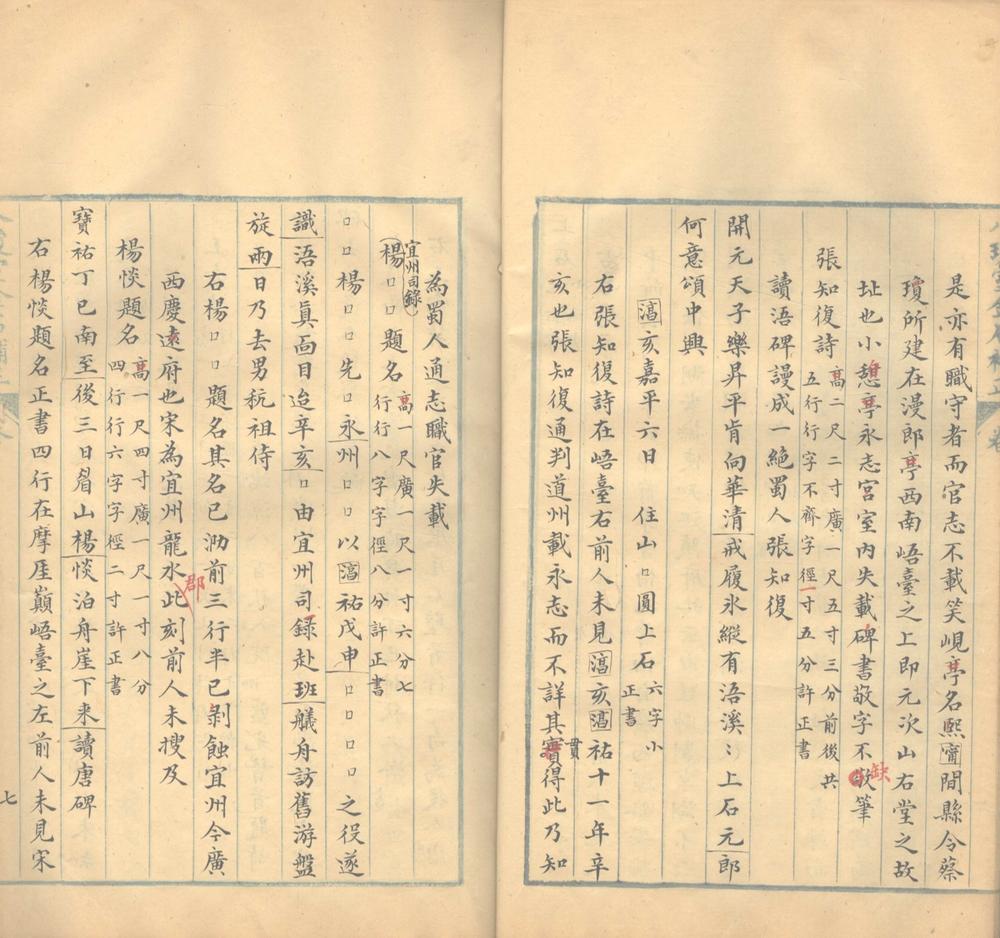 是亦有職守者而官志不載笑峴亭名熙甯間縣令蔡
瓊所建在漫郎亭西南峿臺之上即元次山右堂之故
址也小憩亭永志宮室內失載碑書敬字不敬筆
缺
張知復詩高二尺二寸廣一尺五寸三分前後共
五行行字不齊字徑一寸五分許正書
讀浯碑謾成一絕蜀人張知復
開元天子樂昇平肯向華清戒履氷縱有浯溪〻上石元郎
何意頌中興
淳亥嘉平六日 住山□圓上石六字小
正書
右張知復詩在峿臺右前人未見淳亥淳祐十一年辛
亥也張知復通判道州載永志而不詳其實得此乃知
貫
為蜀人通志職官失載
宜州司錄
楊□□題名高一尺廣一尺一寸六分七
行行八字字徑八分許正書
□□楊□□先□永州□□以淳祐戊申□□□□之役遂
識浯溪眞面目迨辛亥□由宜州司錄赴班艤舟訪舊游盤
旋兩日乃去男秔祖侍
右楊□□題名其名已泐前三行半已剝蝕宜州今廣
西慶遠府也宋為宜州龍水此刻前人未搜及
郡
楊惔題名高一尺四寸廣一尺一寸八分
四行行六字字徑二寸許正書
寶祐丁巳南至後三日眉山楊惔泊舟崖下来讀唐碑
右楊惔題名正書四行在摩厓巔峿臺之左前人未見宋
七